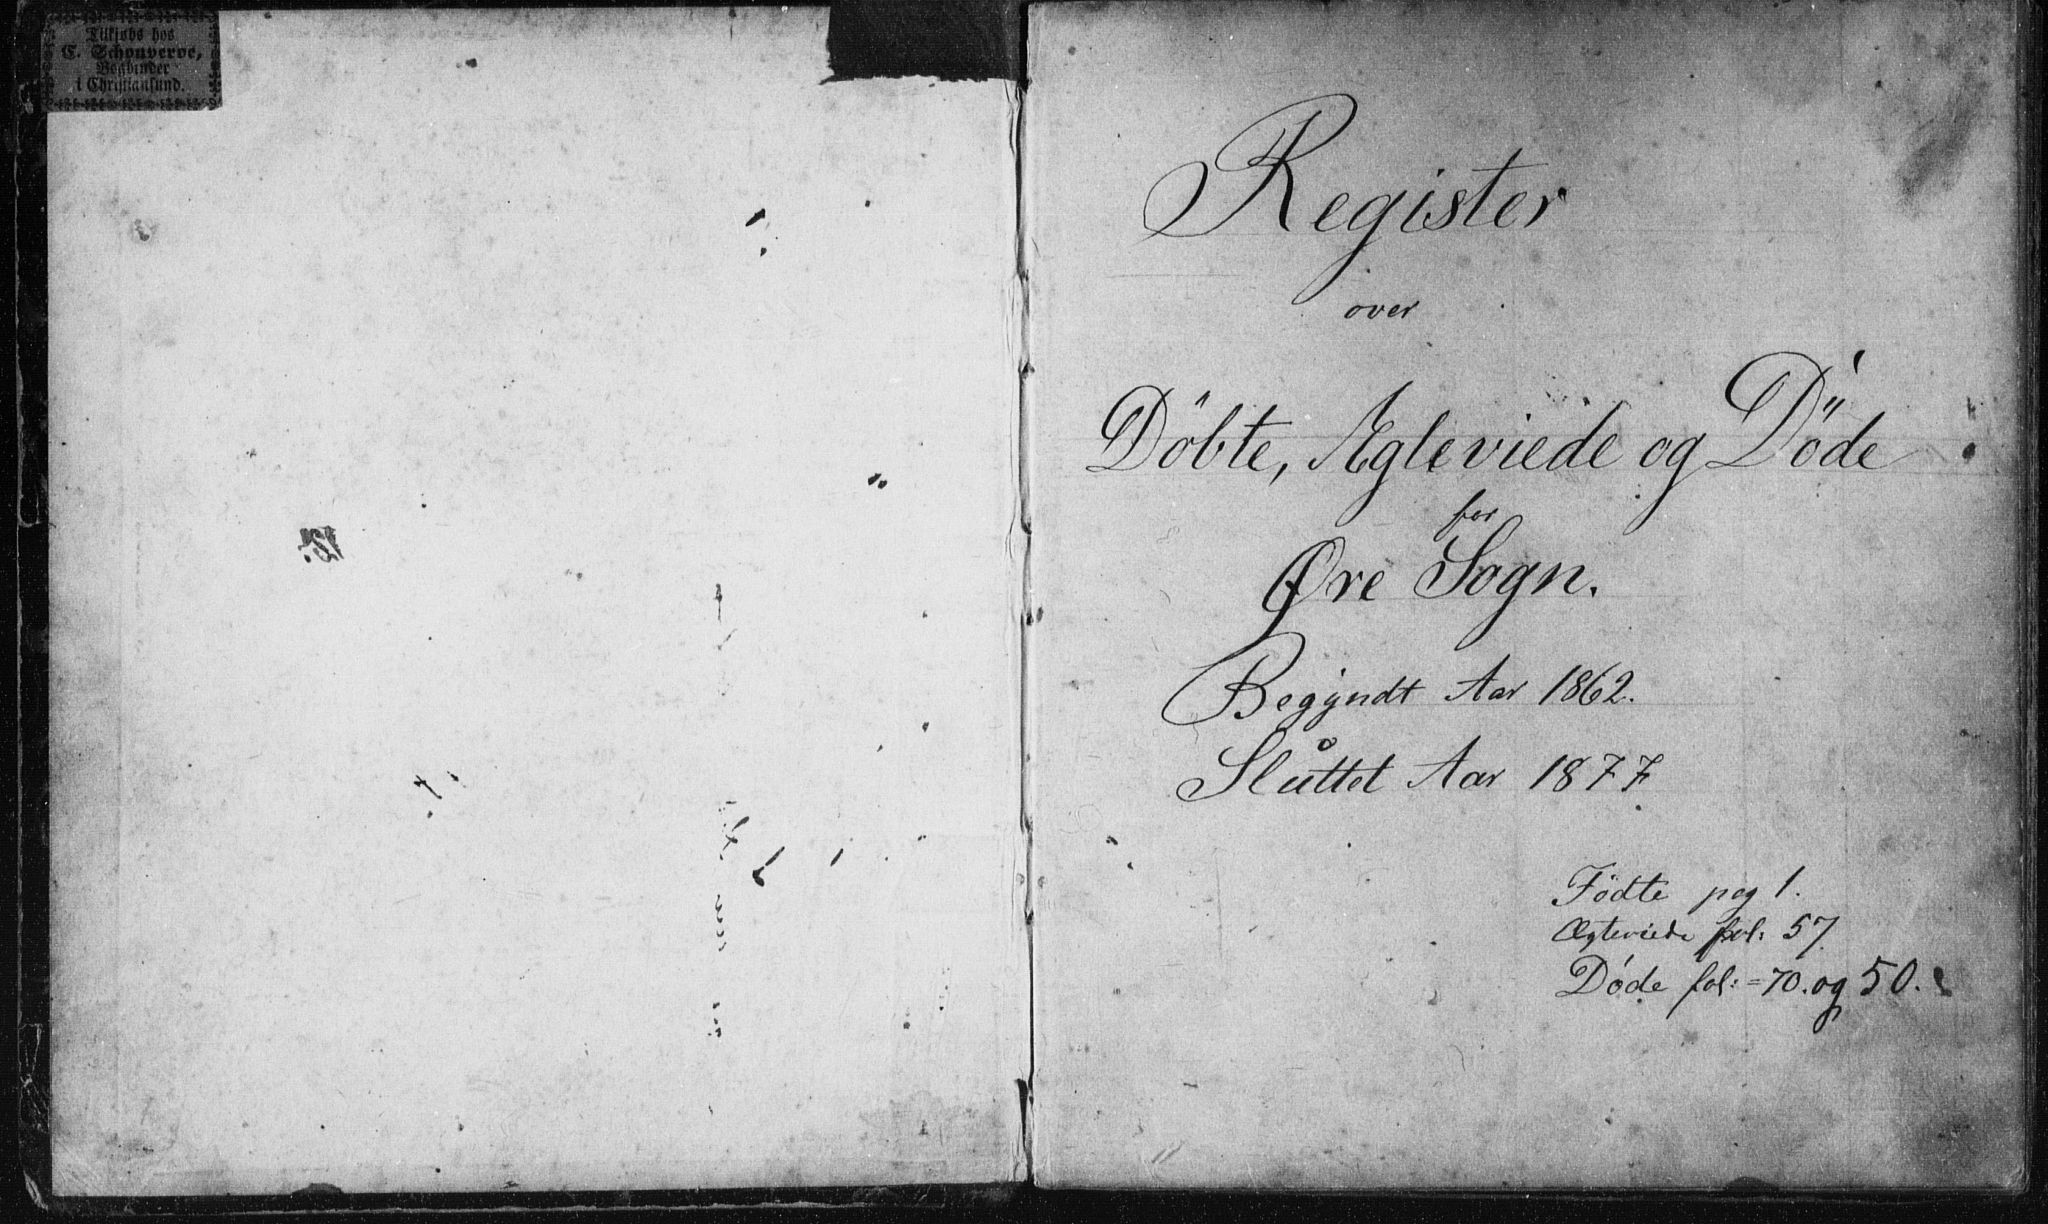 Tilkjøbs hos
C. Schonveroe,
Bogbinder
i Christiansund.
Register
over
Döbte, Ægteviede og Döde
for
Øre Sogn.
Begyndt Aar 1862.
Sluttet Aar 1877
Fødte pag 1.
Ægteviede fol: 57
Døde fol: = 70. og 50.